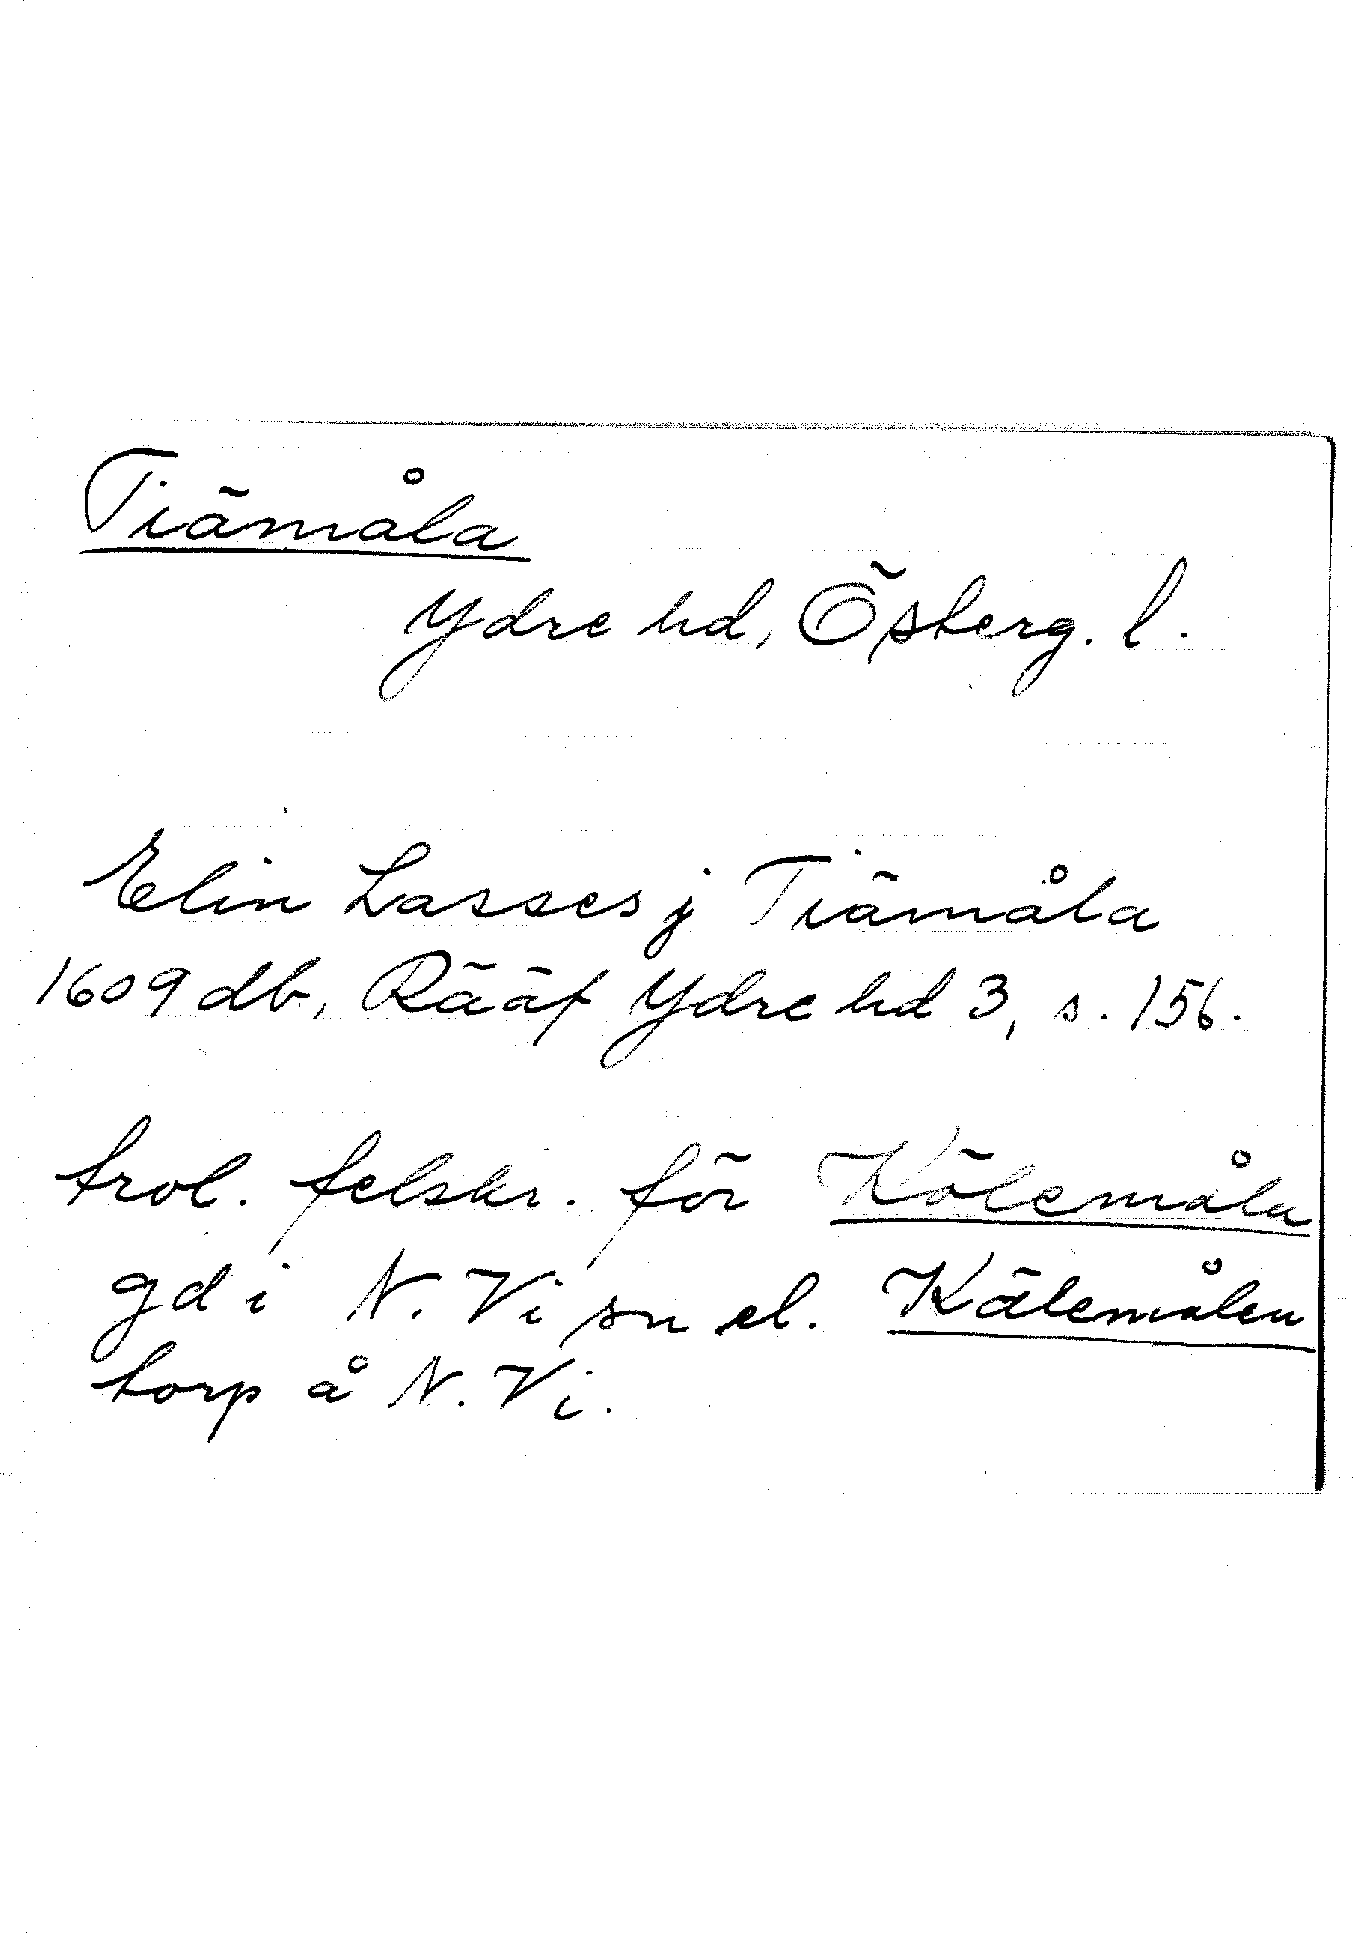 Tiämåla
Ydre hd, Österg. l.
Elin Lasses j Tiämåla
1609 db, Rääf Ydre hd 3, s. 156.
trol. felskr. för Kölemåla
gd i N. Vi sn el. Kälemålen
torp å N. Vi.